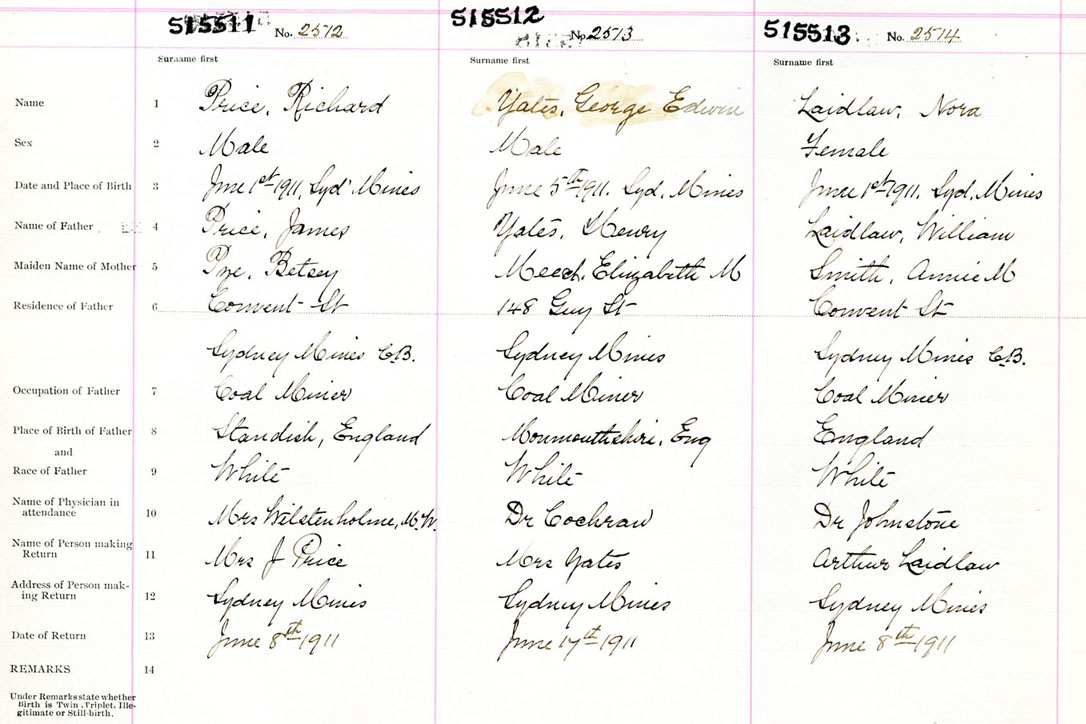 515511 No. 2512 515512 No. 2513 515513 No. 2514
Surname first Surname first Surname first
Name 1 Price, Richard Yates, George Edwin Laidlaw, Nora
Sex 2 Male Male Female
Date and Place of Birth 3 June 1st 1911, Syd' Mines June 5th 1911. Syd. Mines June 1st 1911, Syd. Mines
Name of Father 4 Price, James Yates, Henry Laidlaw, William
Maiden Name of Mother 5 Pye, Betsey Meech, Elizabeth M Smith, Annie M
Residence of Father 6 Convent St 148 Guy St Convent St
Sydney Mines C.B. Sydney Mines Sydney Mines C.B.
Occupation of Father 7 Coal Miner Coal Miner Coal Miner
Place of Birth of Father 8 Standish, England Monmouthshire, Eng England
and
Race of Father 9 White White White
Name of Physician in
attendance 10 Mrs Wilstenholme, M.W. Dr Cochran Dr Johnstone
Name of Person making
Return 11 Mrs J Price Mrs Yates Arthur Laidlaw
Address of Person mak-
ing Return 12 Sydney Mines Sydney Mines Sydney Mines
Date of Return 13 June 8th 1911 June 17th 1911 June 8th 1911
REMARKS 14
Under Remarks state whether
Birth is Twin, Triplet, Ille-
gitimate or Still-birth.